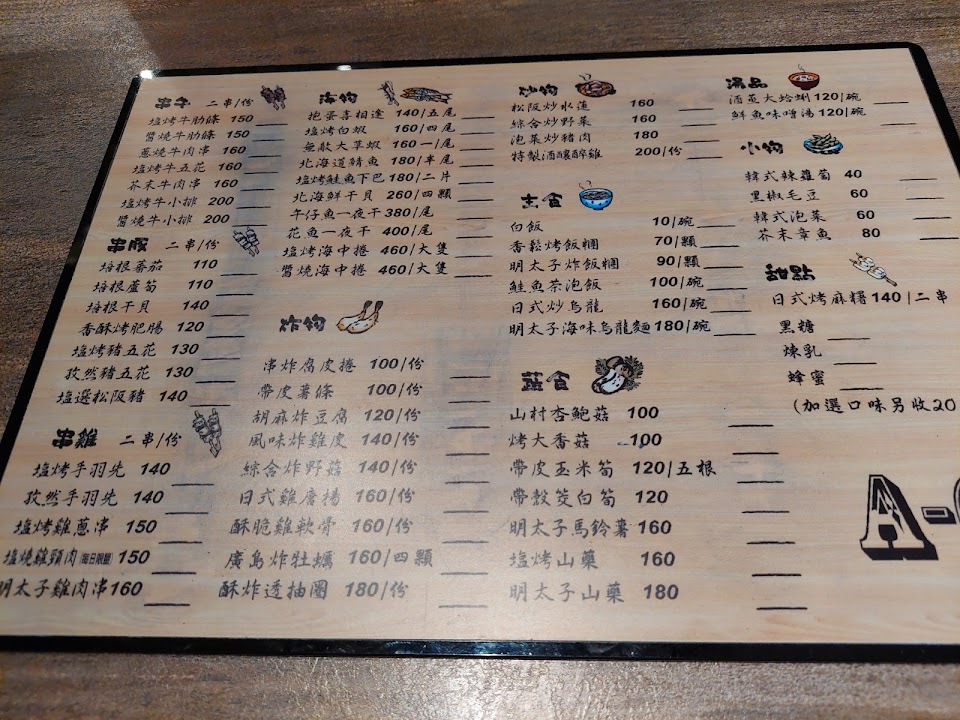 串牛 二串/份
塩烤牛肋條 150
醬燒牛肋條 150
蔥燒牛肉串 160
塩烤牛五花 160
芥末牛肉串 160
塩烤牛小排 200
醬燒牛小排 200
串豚 二串/份
培根蕃茄 110
培根蘆筍 110
培根干貝 140
香酥烤肥腸 120
塩烤豬五花 130
孜然豬五花 130
塩選松阪豬 140
串雞 二串/份
塩烤手羽先 140
孜然手羽先 140
塩烤雞蔥串 150
塩燒雞頸肉(每日限量) 150
明太子雞肉串 160
海物
抱蛋喜相逢 140/五尾
塩烤白蝦 160/四尾
無敵大草蝦 160一/尾
北海道鯖魚 180/半尾
塩烤鮭魚下巴 180/二片
北海鮮干貝 260/四顆
午仔魚一夜干 380/尾
花魚一夜干 400/尾
塩烤海中捲 460/大隻
醬燒海中捲 460/大隻
炸物
串炸腐皮捲 100/份
帶皮薯條 100/份
胡麻炸豆腐 120/份
風味炸雞皮 140/份
綜合炸野菇 140/份
日式雞唐揚 160/份
酥脆雞軟骨 160/份
廣島炸牡蠣 160/四顆
酥炸透抽圈 180/份
炒物
松阪炒水蓮 160
綜合炒野菜 160
泡菜炒豬肉 180
特製酒釀醉雞 200/份
主食
白飯 10/碗
香鬆烤飯糰 70/顆
明太子炸飯糰 90/顆
鮭魚茶泡飯 100/碗
日式炒烏龍 160/碗
明太子海味烏龍麵 180/碗
蔬食
山村杏鮑菇 100
烤大香菇 100
帶皮玉米筍 120/五根
帶殼茭白筍 120
明太子馬鈴薯 160
塩烤山藥 160
明太子山藥 180
湯品
酒蒸大蛤蜊 120/碗
鮮魚味噌湯 120/碗
小物
韓式辣蘿蔔 40
黑椒毛豆 60
韓式泡菜 60
芥末章魚 80
甜點
日式烤麻糬 140/二串
黑糖
煉乳
蜂蜜
(加選口味另收20
A-